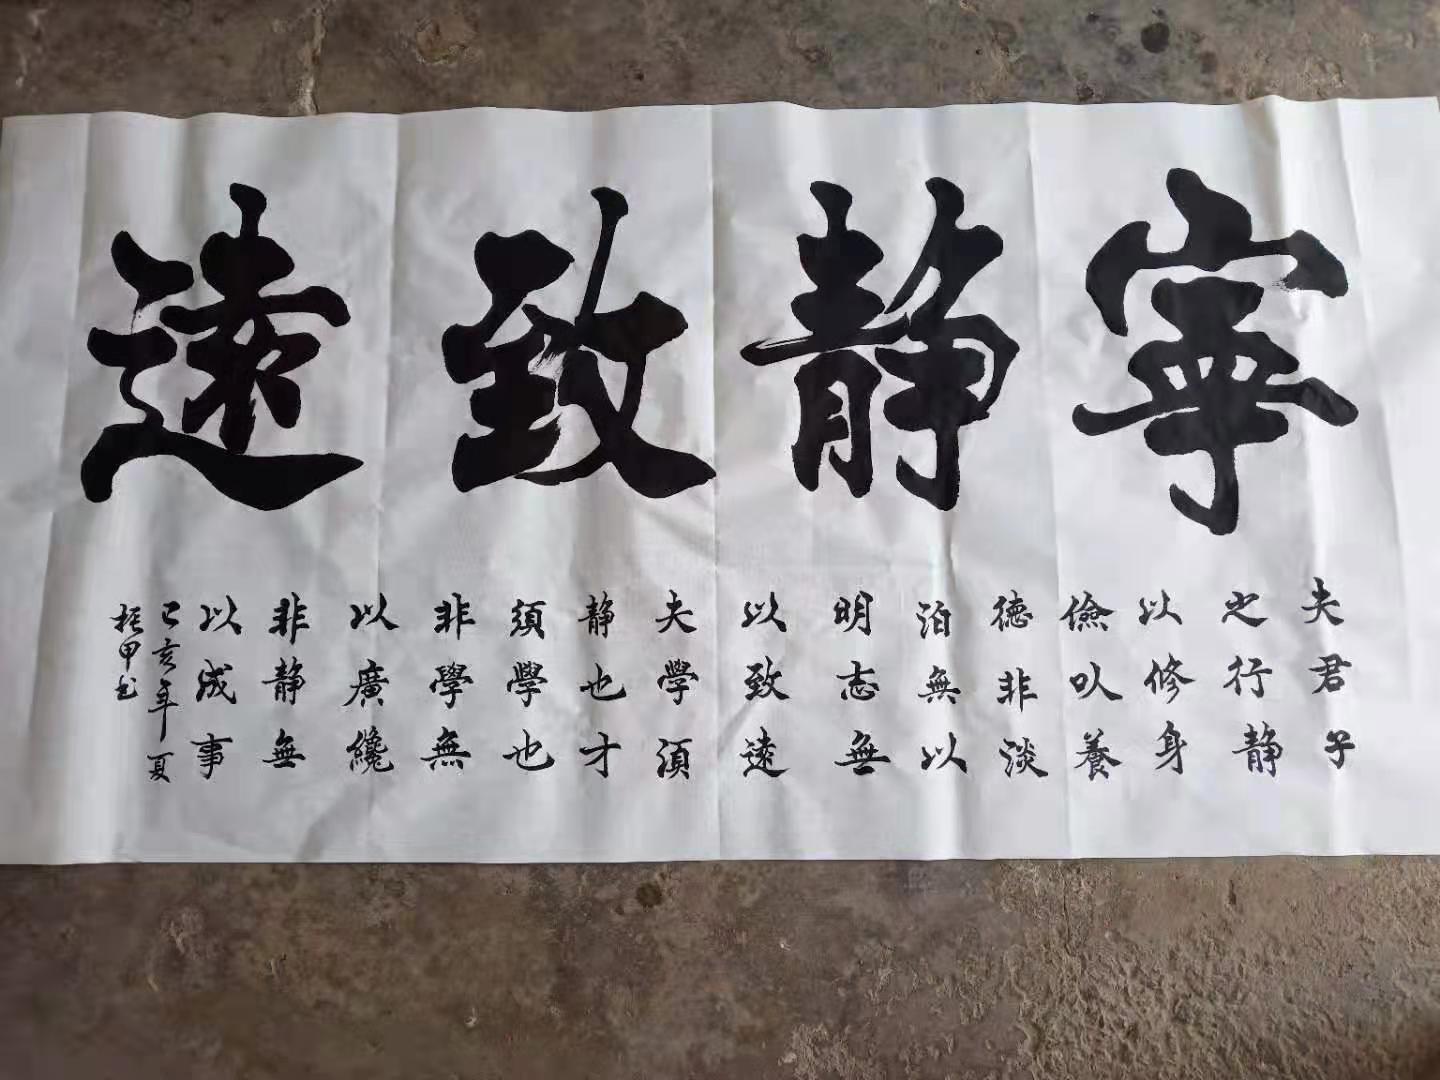 寧静致遠
夫君子
之行静
以修身
儉以養
德非淡
泊無以
明志無
以致遠
夫學須
静也才
須學也
非學無
以廣纔
非静無
以成事
己亥年夏
振甲书